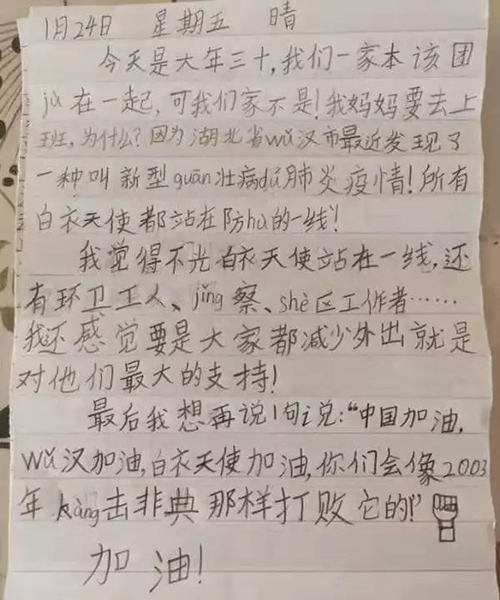 1月24日 星期五 晴
今天是大年三十,我们一家本该团
jù在一起,可我们家不是!我妈妈要去上
班,为什么?因为湖北省wǔ汉市最近发现了
一种叫新型guān壮病dú肺炎疫情!所有
白衣天使都站在防hù的一线!
我觉得不光白衣天使站在一线,还
有环卫工人、jǐng察、shè区工作者……
我还感觉要是大家都减少外出就是
对他们最大的支持!
最后我想再说1句说:“中国加油,
wǔ汉加油,白衣天使加油,你们会像2003
年kàng击非典那样打败它的!”
加油!